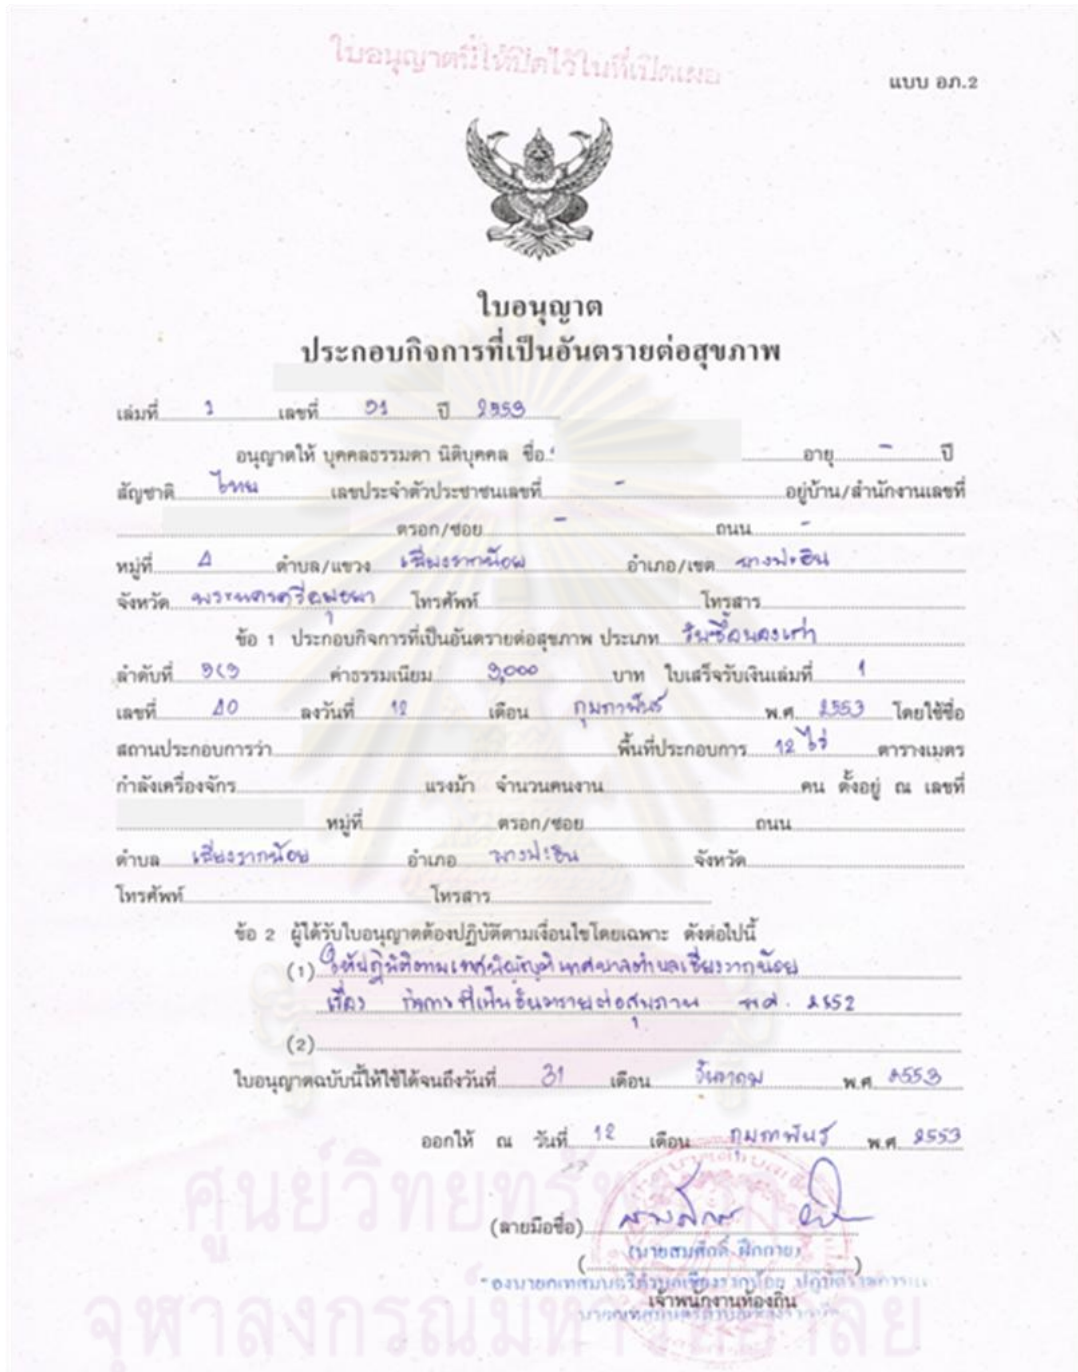 ใบอนุญาตนี้ให้ปิดไว้ในที่เปิดเผย
แบบ อภ.2
ใบอนุญาต
ประกอบกิจการที่เป็นอันตรายต่อสุขภาพ
เล่มที่ 1 เลขที่ 31 ปี 2553
อนุญาตให้ บุคคลธรรมดา นิติบุคคล ชื่อ อายุ - ปี
สัญชาติ ไทย เลขประจำตัวประชาชนเลขที่ - อยู่บ้าน/สำนักงานเลขที่
ตรอก/ซอย - ถนน -
หมู่ที่ 4 ตำบล/แขวง เชียงรากน้อย อำเภอ/เขต บางปะอิน
จังหวัด พระนครศรีอยุธยา โทรศัพท์ โทรสาร
ข้อ 1 ประกอบกิจการที่เป็นอันตรายต่อสุขภาพ ประเภท รับซื้อของเก่า
ลำดับที่ ค่าธรรมเนียม 3,000 บาท ใบเสร็จรับเงินเล่มที่ 1
เลขที่ 40 ลงวันที่ 12 เดือน กุมภาพันธ์ พ.ศ. 2553 โดยใช้ชื่อ
สถานประกอบการว่า พื้นที่ประกอบการ 12 ไร่ ตารางเมตร
กำลังเครื่องจักร แรงม้า จำนวนคนงาน คน ตั้งอยู่ ณ เลขที่
หมู่ที่ ตรอก/ซอย ถนน
ตำบล เชียงรากน้อย อำเภอ บางปะอิน จังหวัด
โทรศัพท์ โทรสาร
ข้อ 2 ผู้ได้รับใบอนุญาตต้องปฏิบัติตามเงื่อนไขโดยเฉพาะ ดังต่อไปนี้
(1) ให้ปฏิบัติตามเทศบัญญัติ เทศบาลตำบลเชียงรากน้อย
เรื่อง กิจการที่เป็นอันตรายต่อสุขภาพ พ.ศ. 2552
(2)
ใบอนุญาตฉบับนี้ให้ใช้ได้จนถึงวันที่ 31 เดือน ธันวาคม พ.ศ. 2553
ออกให้ ณ วันที่ 12 เดือน กุมภาพันธ์ พ.ศ. 2553
ศูนย์วิทยทรัพยากร
(ลายมือชื่อ)
(นายสมศักดิ์ ฝึกถาย)
( )
รองนายกเทศมนตรีตำบลเชียงรากน้อย ปฏิบัติราชการแทน
เจ้าพนักงานท้องถิ่น
นายกเทศมนตรีตำบลเชียงรากน้อย
จุฬาลงกรณ์มหาวิทยาลัย